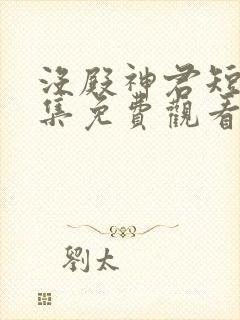 沒殿神君短
集免費觀看
劉太